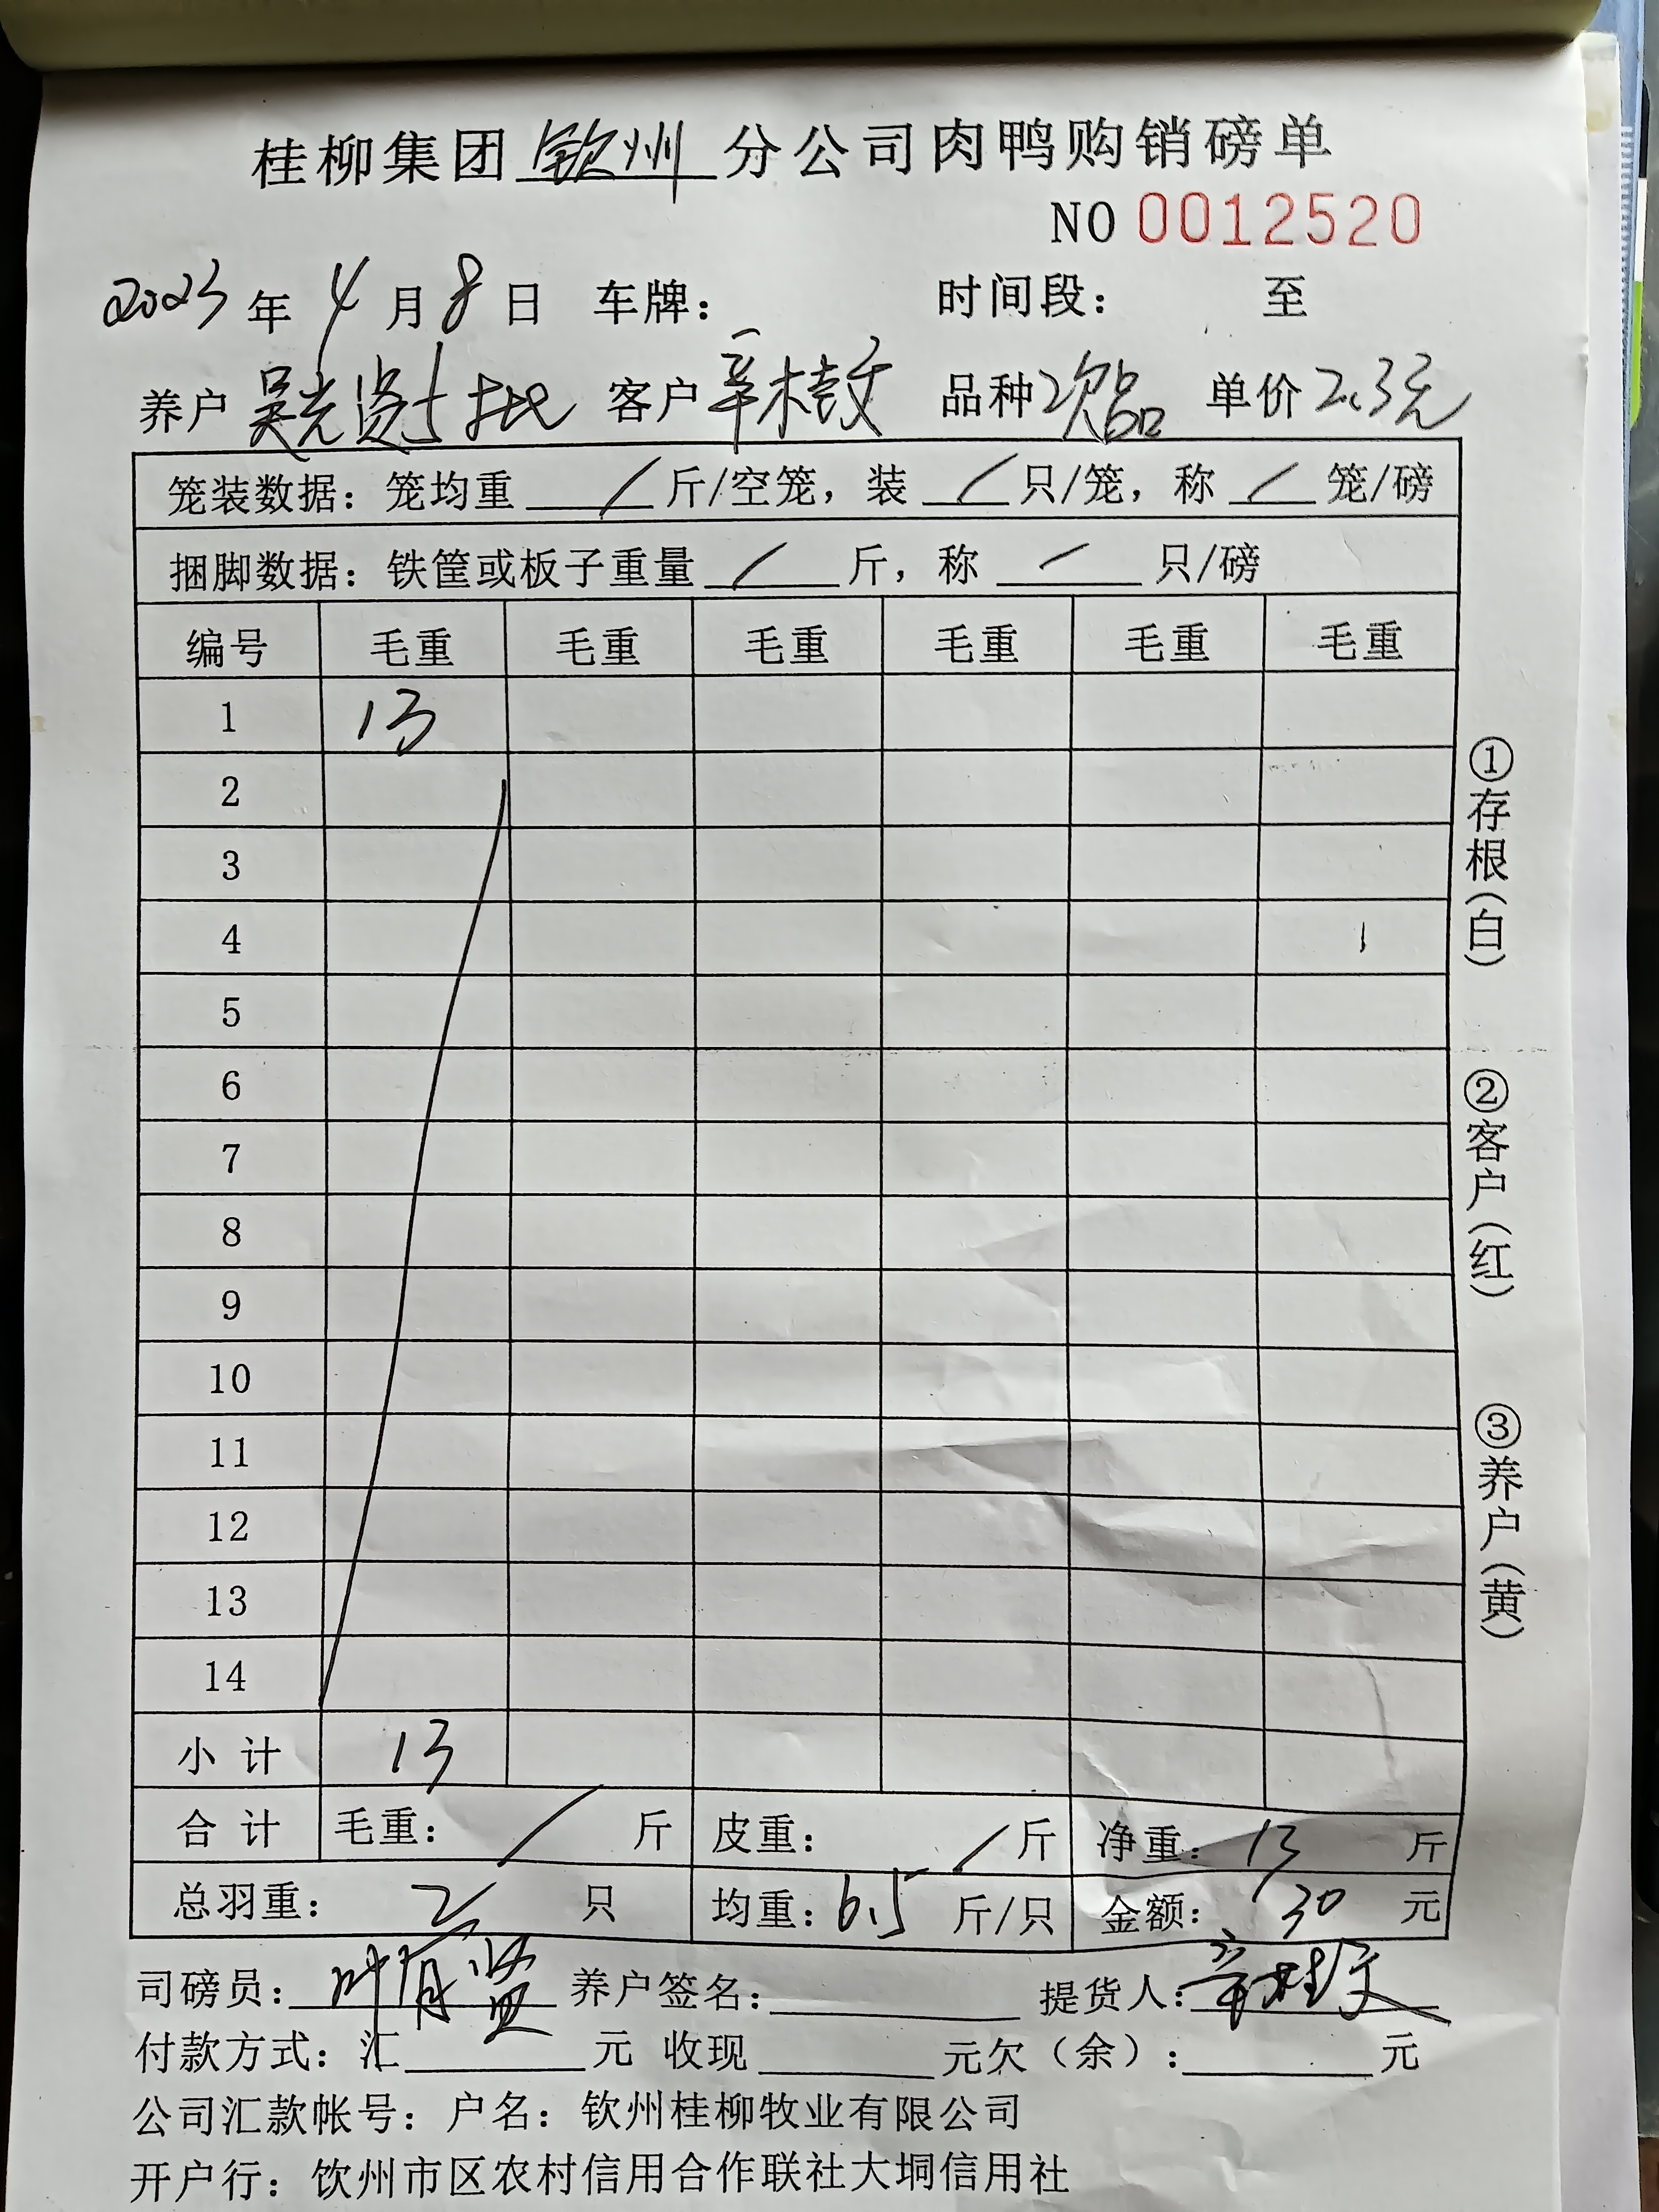 桂柳集团钦州分公司肉鸭购销磅单
NO 0012520
2023年4月8日 车牌： 时间段： 至
养户 吴光贤5批 客户 辛桂文 品种 次品 单价 2.3元
笼装数据：笼均重 / 斤/空笼，装 / 只/笼，称 / 笼/磅
捆脚数据：铁筐或板子重量 / 斤，称 / 只/磅
编号 毛重 毛重 毛重 毛重 毛重 毛重
1 13
2
3
4
5
6
7
8
9
10
11
12
13
14
小计 13
合计 毛重： / 斤 皮重： / 斤 净重：13 斤
总羽重：2 只 均重：6.5 斤/只 金额：30 元
司磅员：叶有 养户签名： 提货人：辛桂文
付款方式：汇 元 收现 元欠（余）： 元
公司汇款帐号：户名：钦州桂柳牧业有限公司
开户行：钦州市区农村信用合作联社大垌信用社
①存根（白）
②客户（红）
③养户（黄）